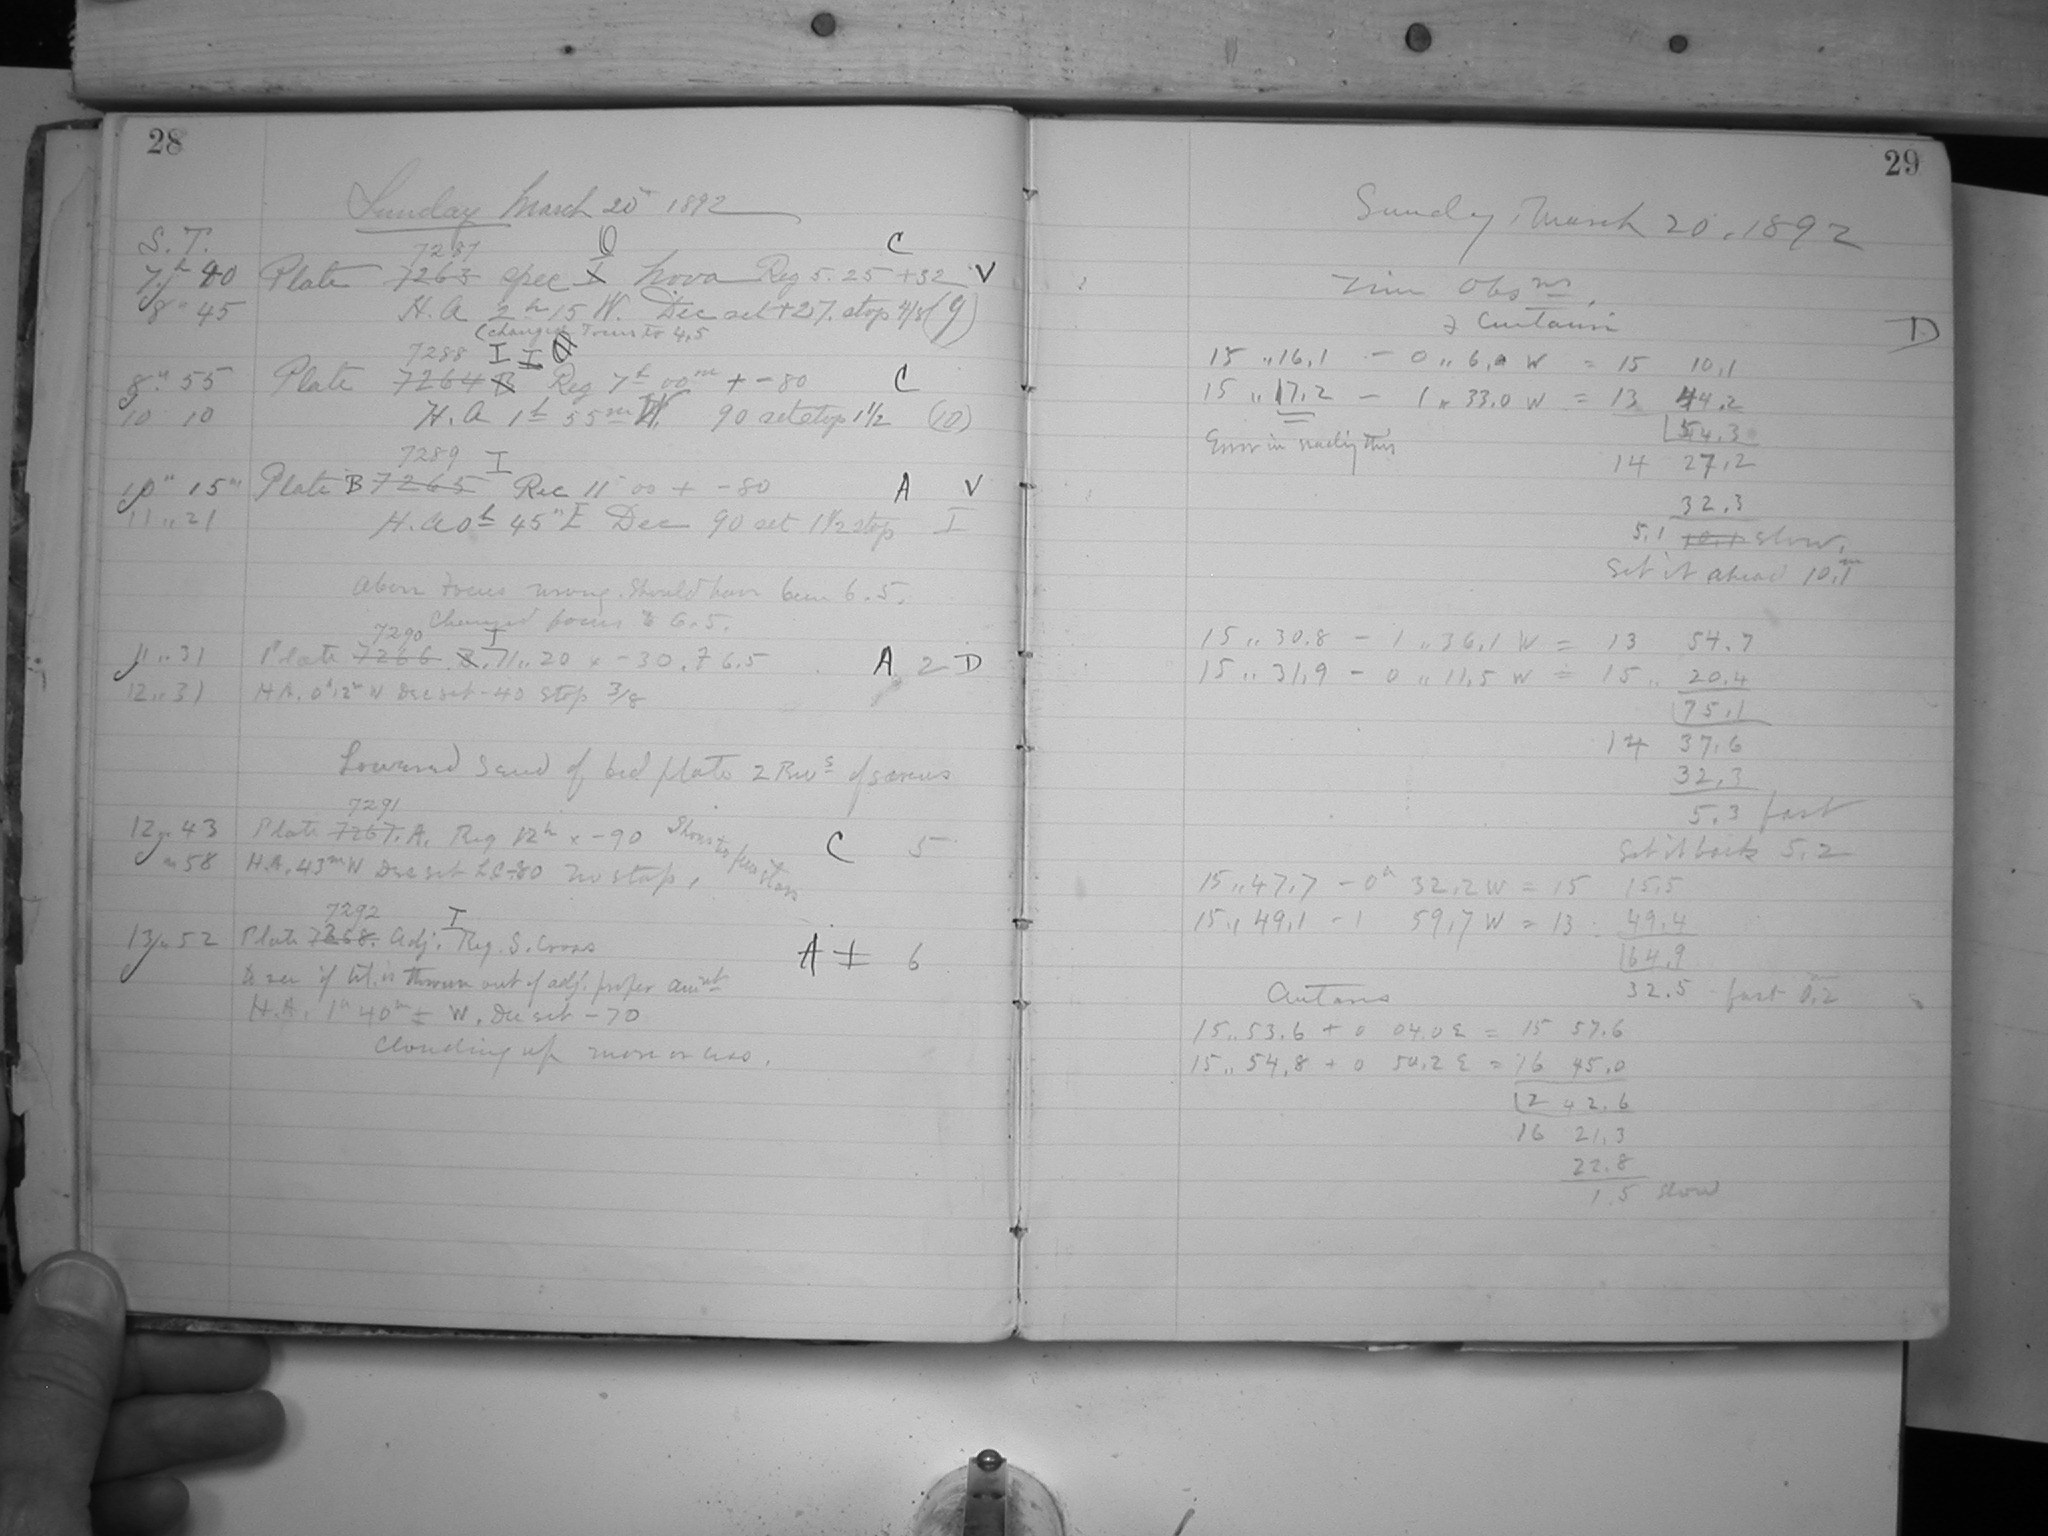 28
Sunday March 20 1892
S. T.
7287 Q C
7h 40 Plate 7263 spec I Nova Reg 5.25 +32 V
8 " 45 H.A 2h 15 W. Dec set +27. stop 4/8 (9)
(changed Focus to 4.5
7288 I I
8 " 55 Plate 7264 B Reg 7h 00m + -80 C
10 10 H.A 1h 55m W. 90 set stop 1 1/2 (10)
7289 I
10 " 15m Plate B 7265 Reg 11 00 + -80 A V
11 " 21 H.A 0h 45m E Dec 90 set 1 1/2 stop I
Above Focus wrong. Should have been 6.5.
Changed focus to 6.5.
7290 I
11 " 31 Plate 7266 B. 11 " 20 x -30. F 6.5 A 2 D
12 " 31 H.A. 0h 12m W Dec set -40 stop 3/8
Lowered S end of bed plate 2 Revs of screws
7291
12 " 43 Plate 7267. A. Reg 12h x -90 C 5
" 58 H.A. 43m W Dec set -80 no stop.
7292 I
13 " 52 Plate 7268. Adj. Reg. S. Cross A I 6
to see if tel. is thrown out of adj. proper amount
H.A. 1h 40m W. Dec set -70
Clouding up more or less.
29
Sunday March 20, 1892
Time Obsns.
D
15 " 16.1 - 0 " 6.0 W = 15 10.1
15 " 17.2 - 1 " 33.0 W = 13 44.2
54.3
Error in reading this
14 27.2
32.3
5.1 10.1 slow.
Set it ahead 10.1m
15 " 30.8 - 1 " 36.1 W = 13 54.7
15 " 31.9 - 0 " 11.5 W = 15 " 20.4
75.1
14 37.6
32.3
5.3 fast
Set it back 5.2
15 " 47.7 - 0h 32.2 W = 15 15.5
15 " 49.1 - 1 59.7 W = 13 49.4
64.9
32.5 fast 0.2
Antares
15 " 53.6 + 0 04.0 E = 15 57.6
15 " 54.8 + 0 50.2 E = 16 45.0
2 42.6
16 21.3
22.8
1.5 slow